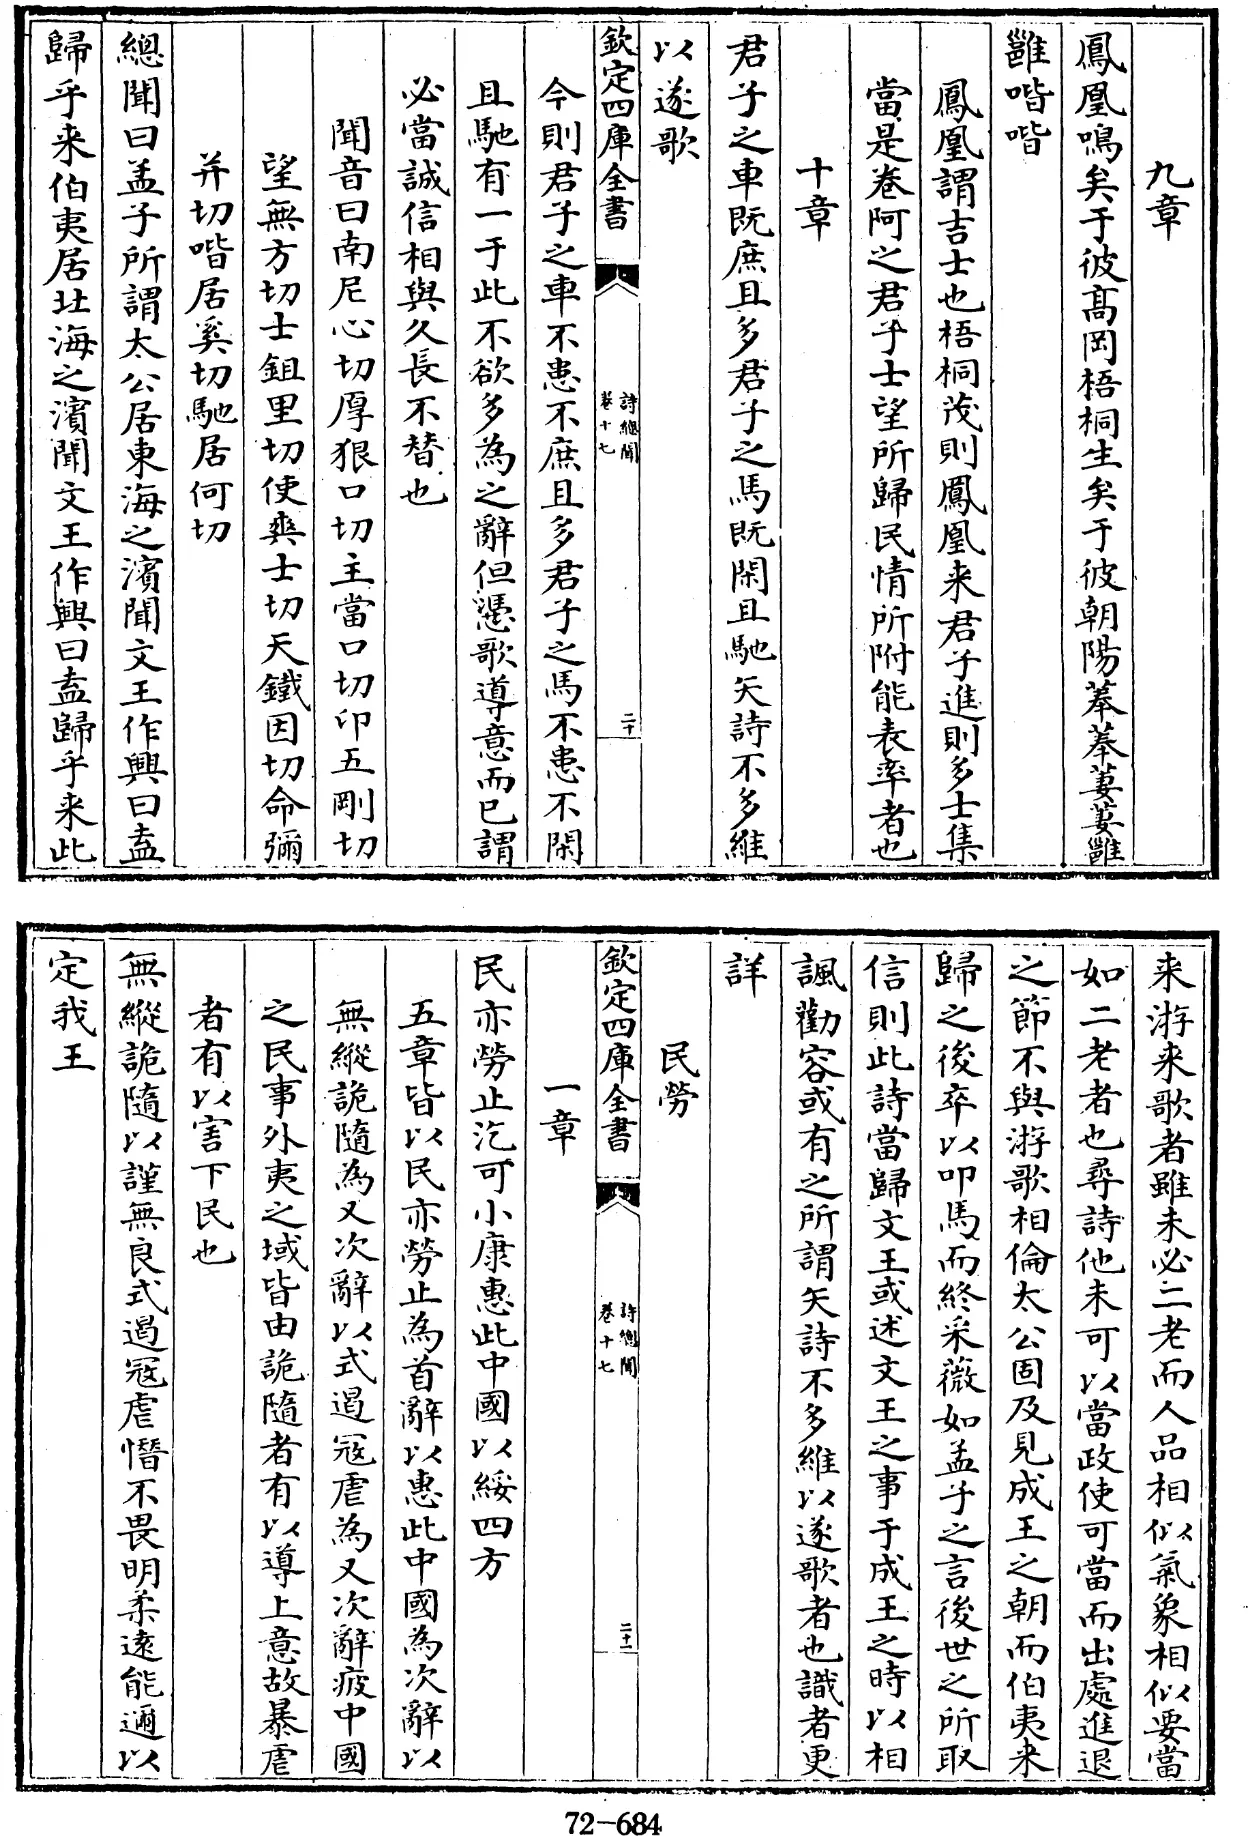 九章
鳳凰鳴矣于彼髙岡梧桐生矣于彼朝陽菶菶萋萋雝
雝喈喈
鳳凰謂吉士也梧桐茂則鳳凰来君子進則多士集
當是卷阿之君子士望所歸民情所附能表率者也
十章
君子之車既庶且多君子之馬既閑且馳矢詩不多維
以遂歌
欽定四庫全書
詩總聞
卷十七
二十
今則君子之車不患不庶且多君子之馬不患不閑
且馳有一于此不欲多為之辭但憑歌導意而已謂
必當誠信相與久長不替也
聞音曰南尼心切厚狠口切主當口切卬五剛切
望無方切士鉏里切使爽士切天鐵因切命彌
并切喈居奚切馳居何切
總聞曰孟子所謂太公居東海之濱聞文王作興曰盍
歸乎来伯夷居北海之濱聞文王作興曰盍歸乎来此
来游来歌者雖未必二老而人品相似氣象相似要當
如二老者也尋詩他未可以當政使可當而出處進退
之節不與游歌相倫太公固及見成王之朝而伯夷来
歸之後卒以叩馬而終采薇如孟子之言後世之所取
信則此詩當歸文王或述文王之事于成王之時以相
諷勸容或有之所謂矢詩不多維以遂歌者也識者更
詳
民勞
欽定四庫全書
詩總聞
卷十七
二十一
一章
民亦勞止汔可小康惠此中國以綏四方
五章皆以民亦勞止為首辭以惠此中國為次辭以
無縱詭隨為又次辭以式遏冦虐為又次辭疲中國
之民事外夷之域皆由詭隨者有以導上意故暴虐
者有以害下民也
無縱詭隨以謹無良式遏冦虐憯不畏明柔逺能邇以
定我王
72-684